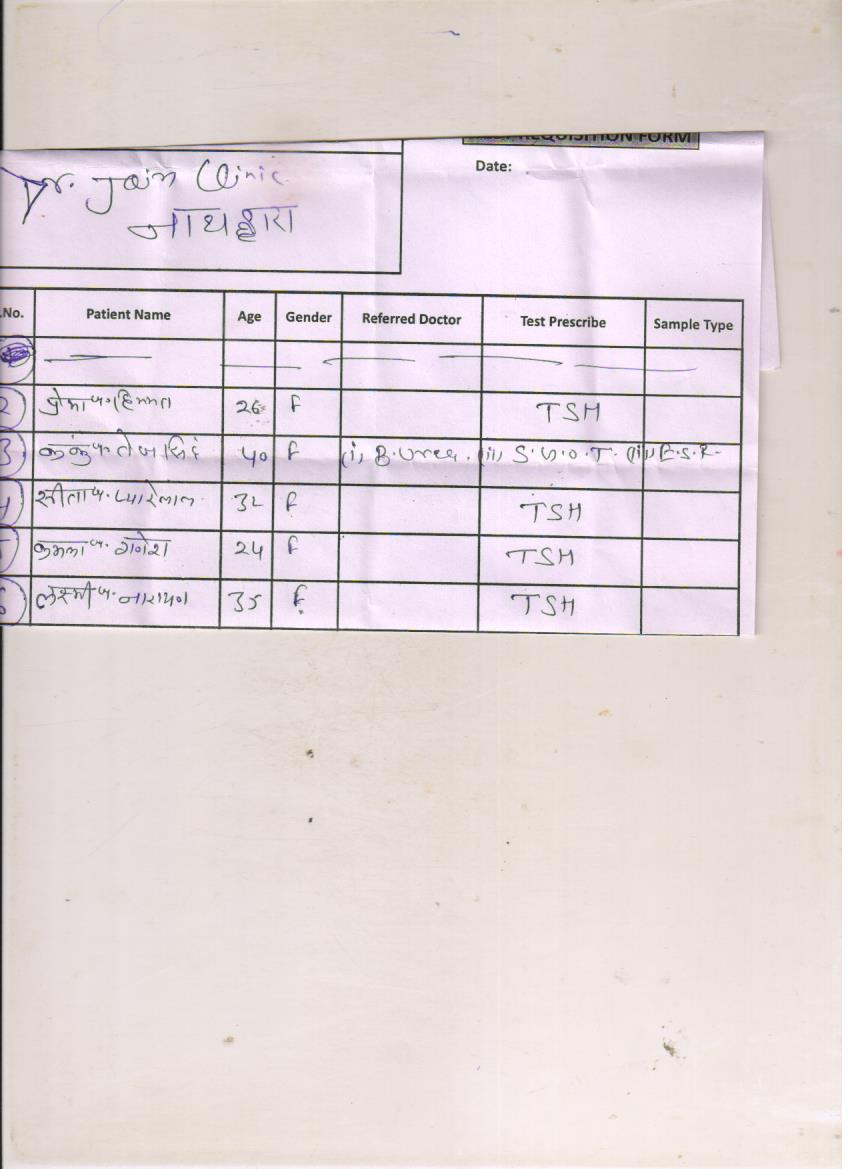 REQUISITION FORM
Dr. Jain Clinic
नाथद्वारा
Date:
.No. Patient Name Age Gender Referred Doctor Test Prescribe Sample Type
2 प्रेमा प. हिम्मत 26 F TSH
3. कंकु प. तेजसिंह 40 F (i) B. Urea. (ii) S.G.O.T. (iii) E.S.R.
4 सीता प. प्यारेलाल 32 F TSH
5 कमला प. गणेश 24 F TSH
6 लक्ष्मी प. नारायण 35 F TSH